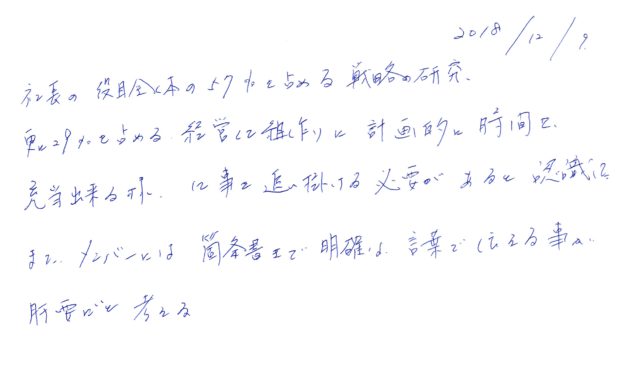 2018/12/9
社長の役目全体の57%を占める戦略の研究、
更に29%を占める経営の仕組作りに計画的に時間を
充当出来る様、仕事を追い掛ける必要があると認識した
また、メンバーには箇条書きで明確な言葉で伝える事が
肝要だと考える